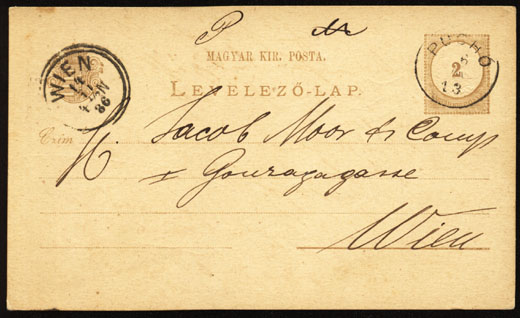 MAGYAR KIR. POSTA.
LEVELEZŐ-LAP.
WIEN
86
PUCHÓ
2
13
Czím
Jacob Moor & Comp
Gonzagagasse
Wien